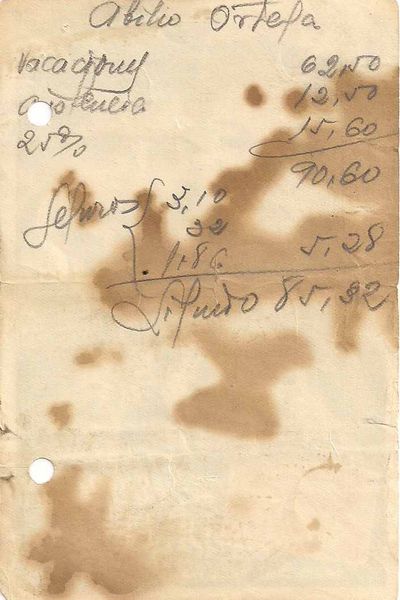 Abilio Ortega
Vacaciones 62,50
Asistencia 12,50
25% 15,60
90,60
Seguros { 3,10
32
1,86 5,28
Líquido 85,32